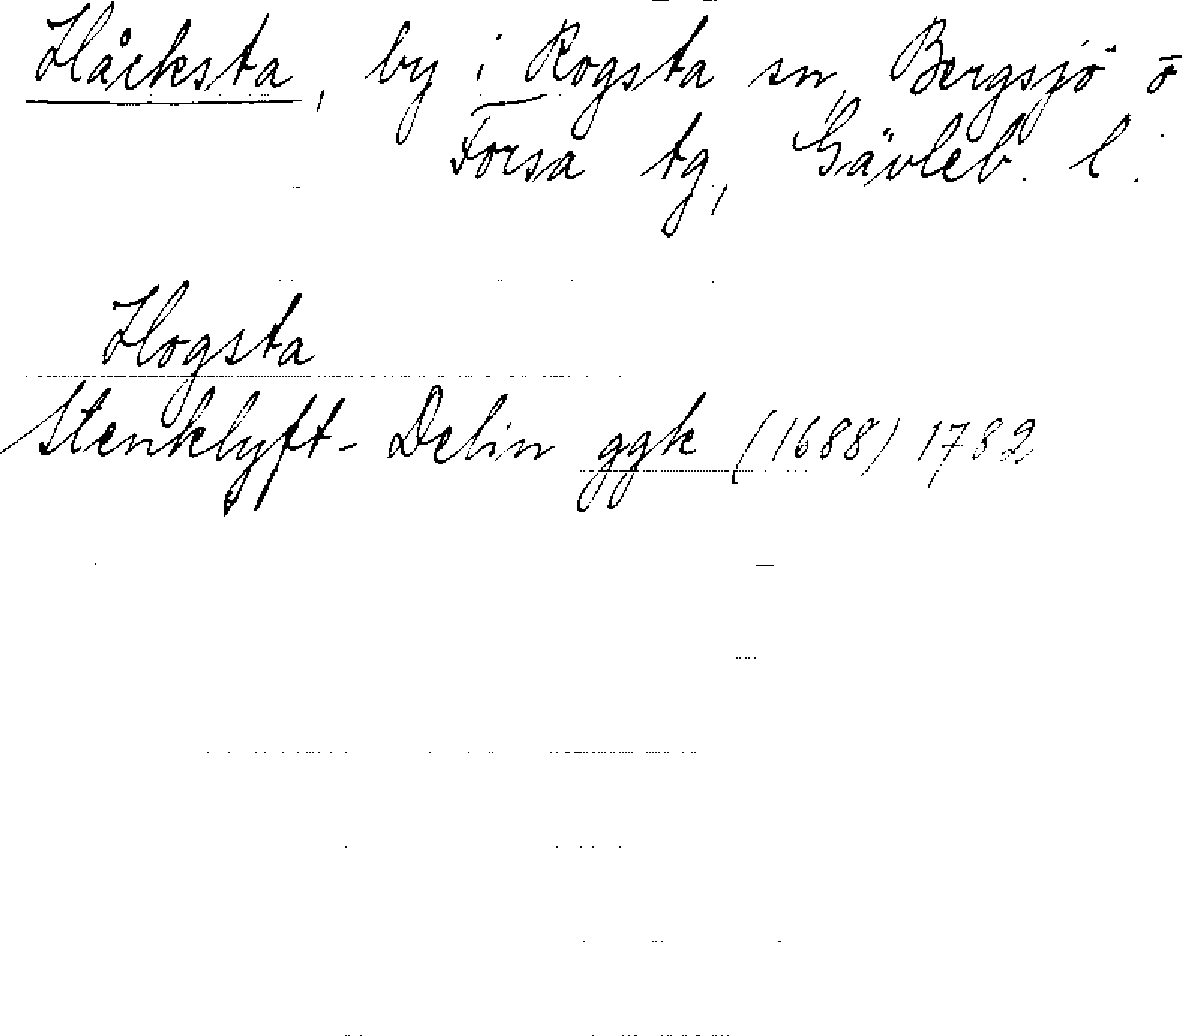 Håcksta, by i Rogsta sn, Bergsjö o
Forsa tg, Gävleb. l.
Hogsta
Stenklyft- Delin ggk (1688) 1782